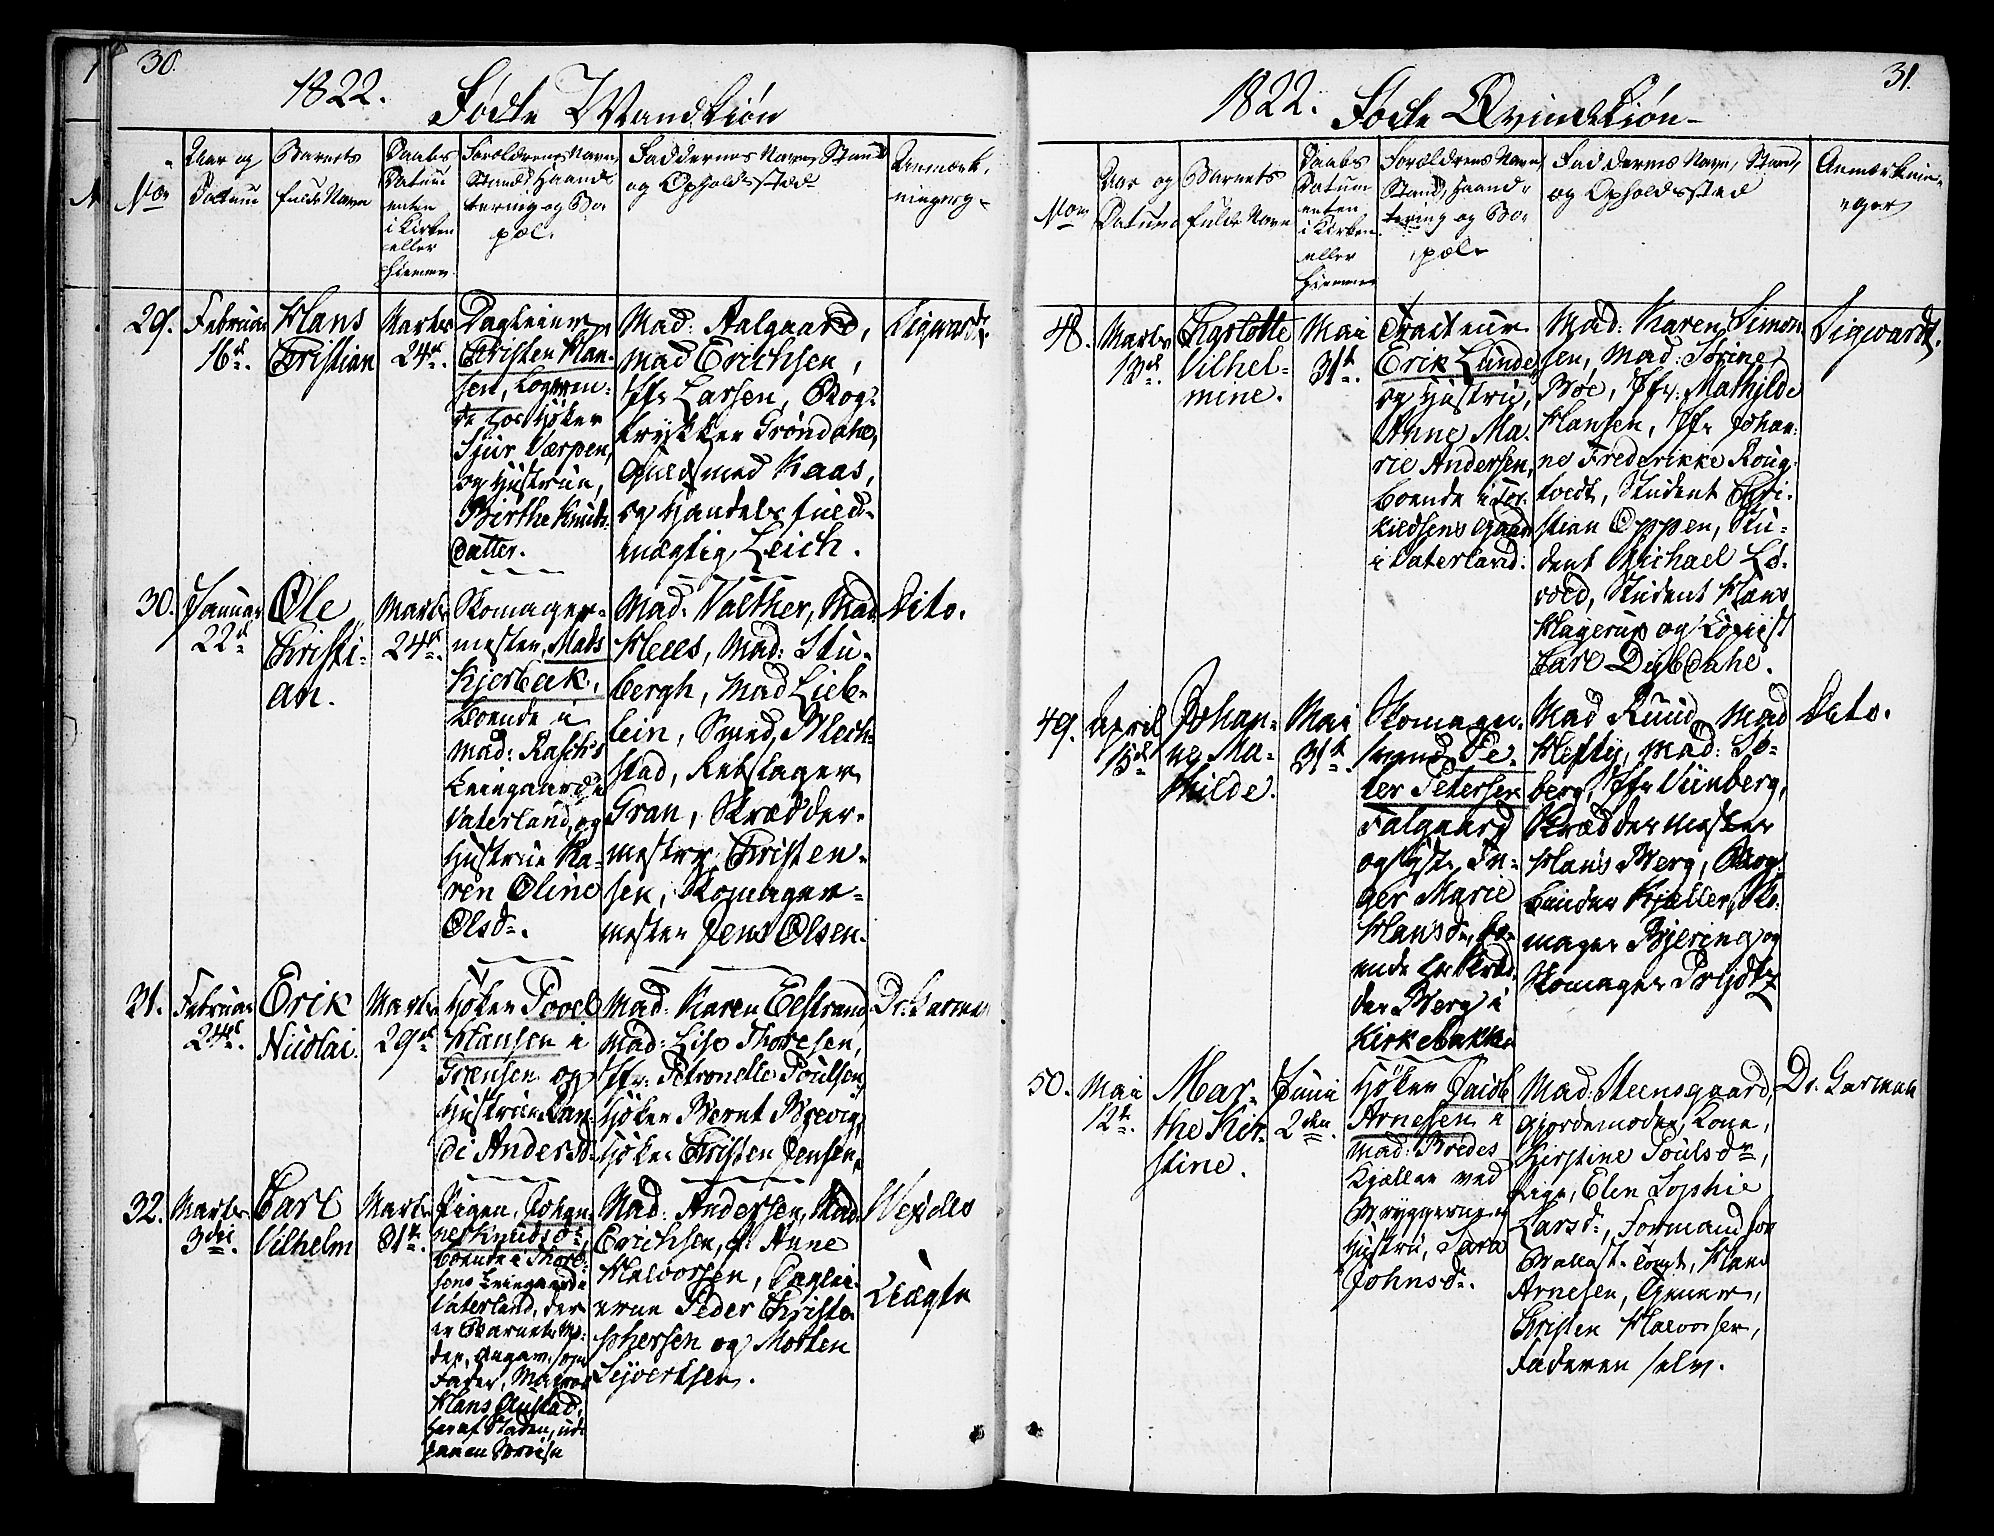 30.
1822. Fødte Mandkiøn
No
Aar og
Datum
Barnets
fulde Navn
Daabs
Datum
enten
i Kirken
eller
hiemme
Forældrenes Navn,
Stand, Haand-
tering og Bo-
pæl.
Faddernes Navn, Stand
og Opholdssted
Anmærk-
ninger
29.
Februar
16de.
Hans
Christian
Marts
24de.
Dagleier
Christen Han-
sen, Logeren-
de hos Høker
Siur Værpen,
og Hustrue,
Birthe Knuds-
datter.
Mad: Aalgaard,
Mad Erichsen,
Jfr Larsen, Bog-
trykker Grøndahl,
Guldsmed Kaas,
og Handels fuld-
mægtig Leich.
Sigwardt.
30.
Januar
22de
Ole
Christi-
an.
Marts
24de.
Skomager-
mester, Mads
Kjerbeck,
boende i
Mad: Rasch's
Leiegaard i
Vaterland, og
Hustrue Ka-
ren Oline
Olsd.
Mad: Valther, Mad
Hells, Mad: Stu-
bergh, Mad Lieb-
lein, Smed Mech-
stad, Rebslager
Gran, Skrædder-
mester Christen-
sen, Skomager-
mester Jens Olsen.
Dito.
31.
Februar
24de.
Erik
Nicolai.
Marts
29de
Høker Povel
Hansen i
Grændsen og
Hustrue Ran-
di Andersd.
Mad: Karen Elstrand
Mad: Lise Thoresen,
Jfr: Petronelle Poulsen,
Høker Bernt Brevig,
Høker Christen Jensen.
Dr. Garman
32.
Marts
3die.
Carl
Vilhelm
Marts
31te.
Pigen, Johan-
ne Knudsd.
boende i Thor-
sens Leiegaard i
Vaterland, der
er Barnets Mo-
der, Angav. som
Fader,
Hans Austad,
her af Staden, ud-
Mad: Andersen, Mad:
Erichsen, J: Anne
Halvorsen, Daglei-
erne Peder Christo-
phersen og Morten
Syvertsen.
Wexels
Uægte
31.
1822. Fødte Qvindekiøn
Nom
Aar og
Datum
Barnets
fulde Navn
Daabs
Datum
enten
i Kirken
eller
hiemme
Forældrenes Navn,
Stand, Haand-
tering og Bo-
pæl
Faddernes Navn, Stand,
og Opholdssted
Anmærknin-
ger
48.
Marts
13de.
Charlotte
Vilhel-
mine.
Mai
31te.
Traiteur
Erik Lunde,
og Hustru,
Anne Ma-
rie Andersen,
boende i Tor-
kildsens Gaard
i Vaterland.
Mad: Karen Simon-
sen, Mad: Strine
Boe, Jfr: Mathilde
Hansen, Jfr Johan-
ne Frederikke Roug-
tvedt, Student Chri-
stian Oppen, Stu-
dent Michael Lø-
vold, Student Hans
Hagerup og Copiist
Carl Dybdahl.
Sigwardt.
49.
April
15de
Johan-
ne Ma-
thilde.
Mai
31te.
Skomager-
svend Pe-
ter Petersen
Falgaard
og Hust. In-
ger Marie
Hansd., bo-
ende hos Skræd-
der Berg i
Kirkebakken
Mad Ruud, Mad
Hefty, Mad: Sø-
berg, Jfr Viinberg,
Skræddermester
Hans Berg, Bog-
binder Kjeller, Sko-
mager Bjering og
Skomager Prydtz
Dito.
50.
Mai
12te.
Mar-
the Kir-
stine.
Juni
2den.
Høker Jacob
Arnesen i
Mad: Bredes
Kjelder ved
Bryggerne,
Hustru, Sara
Johnsd.
Mad: Steensgaard,
Gjordemoder, Kone,
Kirstine Poulsdr,
Pige, Elen Sophie
Larsd., Formand for
Ballast-Tomt, Hans
Arnesen, Gjener,
Christen Halvorsen,
Faderen selv.
Dr. Garman